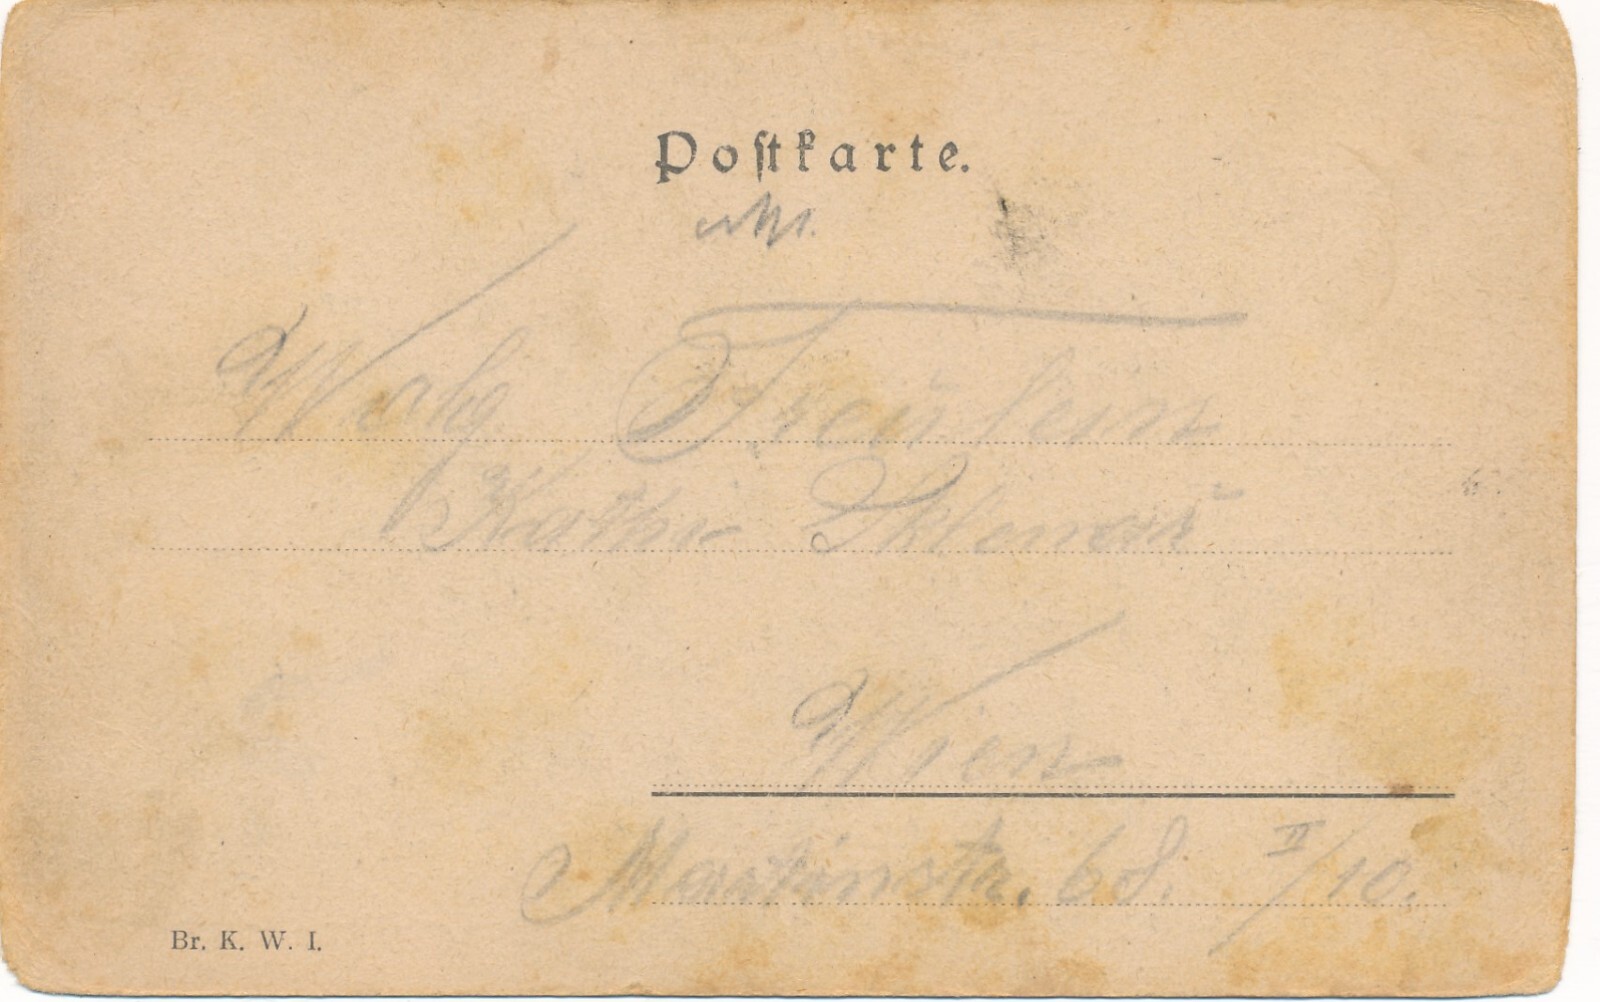 Postkarte.
Wolg Freulein
Kathi
Wien
Martinstr. 68. II/10.
Br. K. W. I.